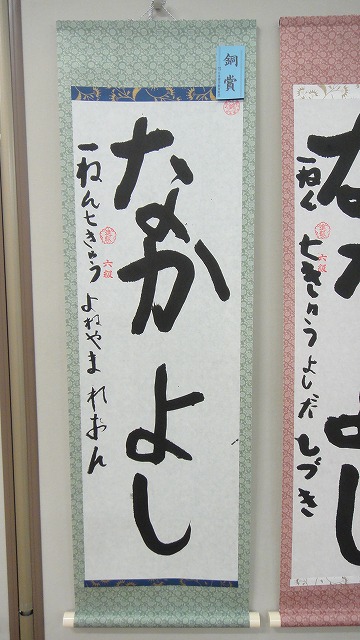 銅賞
なかよし
一ねん七きゅう よねやま れおん
六級
なかよし
一ねん 七きゅう よしだ しづき
六級